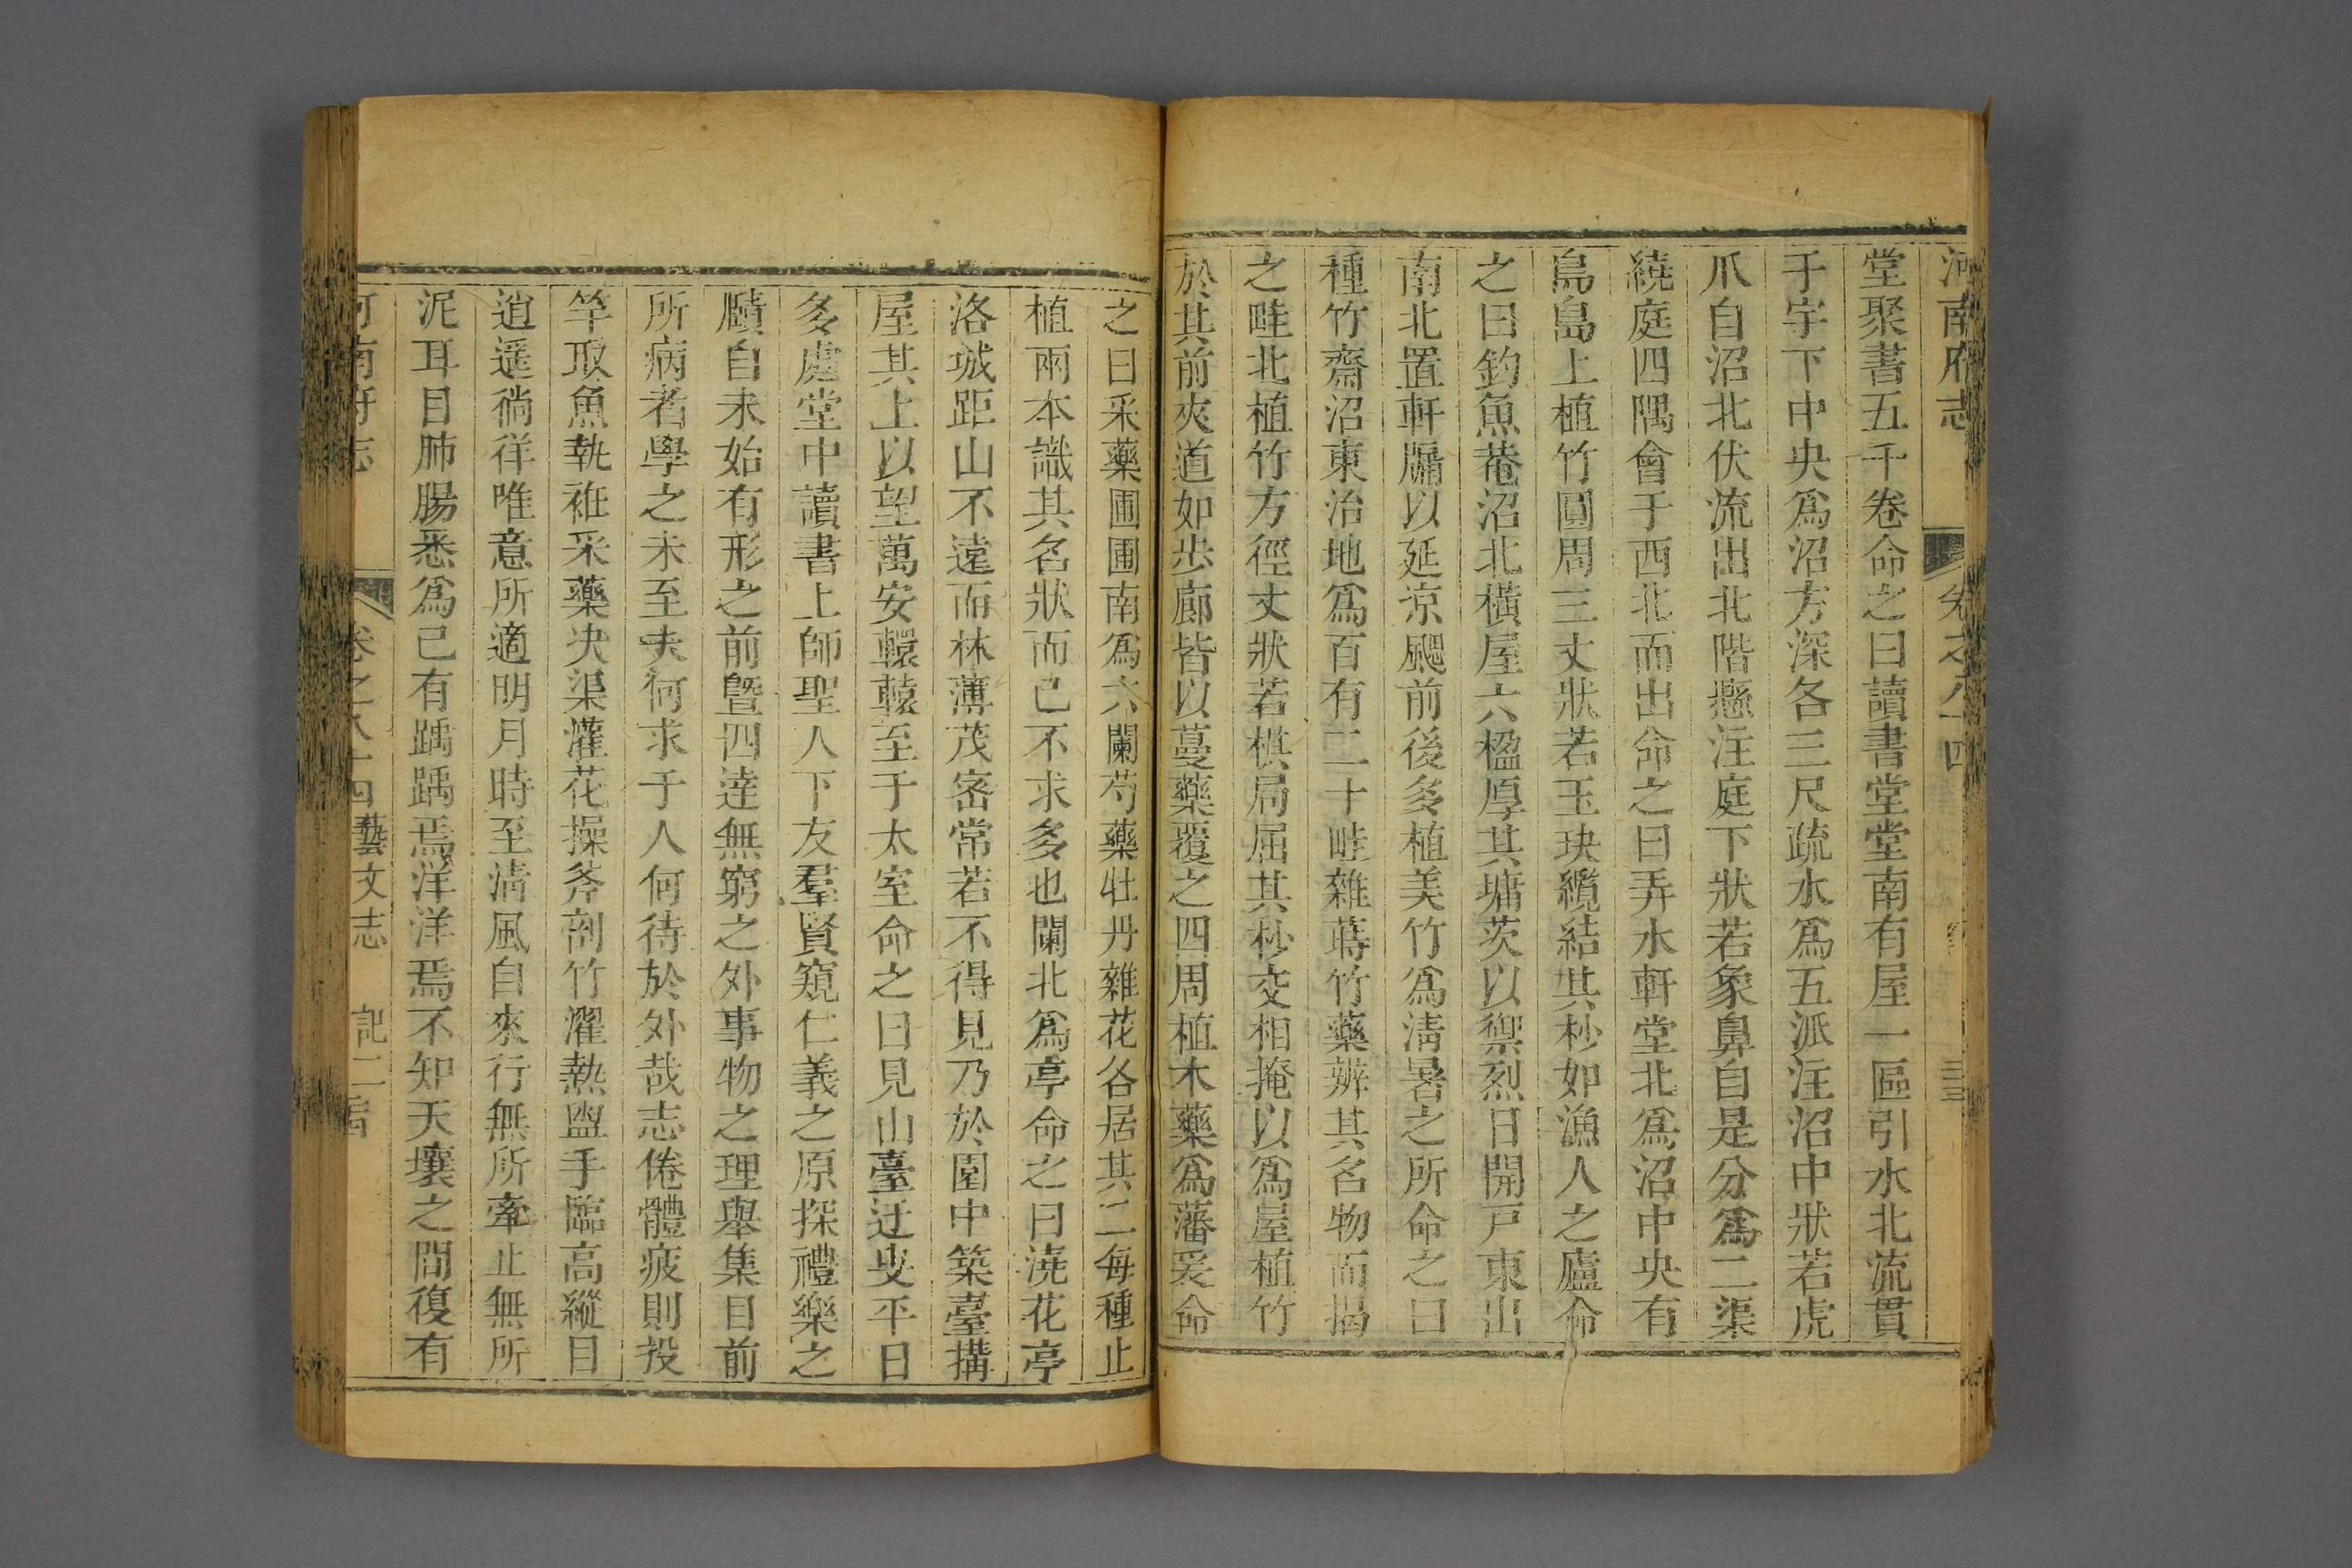 河南府志 卷之八十四
堂聚書五千卷命之曰讀書堂堂南有屋一區引水北流貫
于宇下中央爲沼方深各三尺疏水爲五派注沼中狀若虎
爪自沼北伏流出北階懸注庭下狀若象鼻自是分爲二渠
繞庭四隅會于西北而出命之曰弄水軒堂北爲沼中央有
島島上植竹圓周三丈狀若玉玦纜結其杪如漁人之廬命
之曰釣魚菴沼北橫屋六楹厚其墉茨以禦烈日開戸東出
南北置軒牖以延涼颸前後多植美竹爲淸暑之所命之曰
種竹齋沼東治地爲百有二十畦雜蒔竹藥辨其名物而揭
之畦北植竹方徑丈狀若棋局屈其杪交相掩以爲屋植竹
於其前夾道如步廊皆以蔓藥覆之四周植木藥爲藩爰命
之曰采藥圃圃南爲六闌芍藥牡丹雜花各居其二每種止
植兩本識其名狀而已不求多也闌北爲亭命之曰澆花亭
洛城距山不遠而林薄茂密常若不得見乃於園中築臺搆
屋其上以望萬安轘轅至于太室命之曰見山臺迂叟平日
多處堂中讀書上師聖人下友羣賢窺仁義之原探禮樂之
賾自未始有形之前曁四達無窮之外事物之理舉集目前
所病者學之未至夫何求于人何待於外哉志倦體疲則投
竿取魚執衽采藥决渠灌花操斧剖竹濯熱盥手臨高縱目
逍遙徜徉唯意所適明月時至淸風自來行無所牽止無所
泥耳目肺腸悉爲己有踽踽焉洋洋焉不知天壤之間復有
河南府志 卷之八十四藝文志 記二